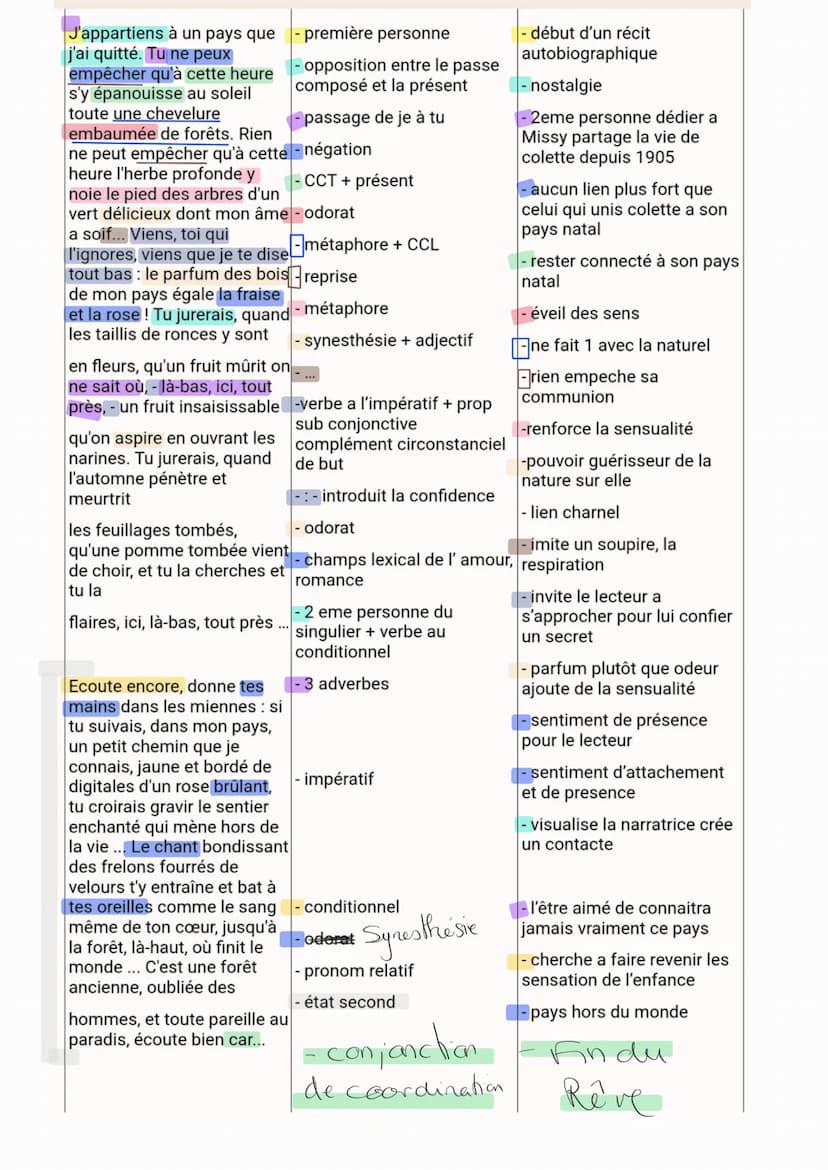 J'appartiens à un pays que
j'ai quitté. Tu ne peux
empêcher qu'à cette heure
s'y épanouisse au soleil
toute une chevelure
embaumée de forêts. Rien
ne peut empêcher qu'à cette
heure l'herbe profonde y
noie le pied des arbres d'un
vert délicieux dont mon âme
a soif... Viens, toi qui
l'ignores, viens que je te dise
tout bas : le parfum des bois
de mon pays égale la fraise
et la rose ! Tu jurerais, quand
les taillis de ronces y sont
en fleurs, qu'un fruit mûrit on
ne sait où, - là-bas, ici, tout
près, - un fruit insaisissable
qu'on aspire en ouvrant les
narines. Tu jurerais, quand
l'automne pénètre et
meurtrit
les feuillages tombés,
qu'une pomme tombée vient
de choir, et tu la cherches et
tu la
flaires, ici, là-bas, tout près ...
Ecoute encore, donne tes
mains dans les miennes : si
tu suivais, dans mon pays,
un petit chemin que je
connais, jaune et bordé de
digitales d'un rose brûlant,
tu croirais gravir le sentier
enchanté qui mène hors de
la vie ... Le chant bondissant
des frelons fourrés de
velours t'y entraîne et bat à
tes oreilles comme le sang
même de ton cœur, jusqu'à
la forêt, là-haut, où finit le
monde ... C'est une forêt
ancienne, oubliée des
hommes, et toute pareille au
paradis, écoute bien car...
- première personne
- opposition entre le passe
composé et la présent
- passage de je à tu
- négation
- CCT + présent
- odorat
- métaphore + CCL
- reprise
- métaphore
- synesthésie + adjectif
- ...
-verbe a l’impératif + prop
sub conjonctive
complément circonstanciel
de but
- : - introduit la confidence
- odorat
- champs lexical de l’ amour,
romance
- 2 eme personne du
singulier + verbe au
conditionnel
- 3 adverbes
- impératif
- conditionnel
- odorat Synesthésie
- pronom relatif
- état second
- conjonction
de coordination
- début d’un récit
autobiographique
- nostalgie
- 2eme personne dédier a
Missy partage la vie de
colette depuis 1905
- aucun lien plus fort que
celui qui unis colette a son
pays natal
- rester connecté à son pays
natal
- éveil des sens
- ne fait 1 avec la naturel
- rien empeche sa
communion
-renforce la sensualité
-pouvoir guérisseur de la
nature sur elle
- lien charnel
- imite un soupire, la
respiration
- invite le lecteur a
s’approcher pour lui confier
un secret
- parfum plutôt que odeur
ajoute de la sensualité
- sentiment de présence
pour le lecteur
- sentiment d’attachement
et de presence
- visualise la narratrice crée
un contacte
- l’être aimé de connaitra
jamais vraiment ce pays
- cherche a faire revenir les
sensation de l’enfance
- pays hors du monde
- Fin du
Rêve